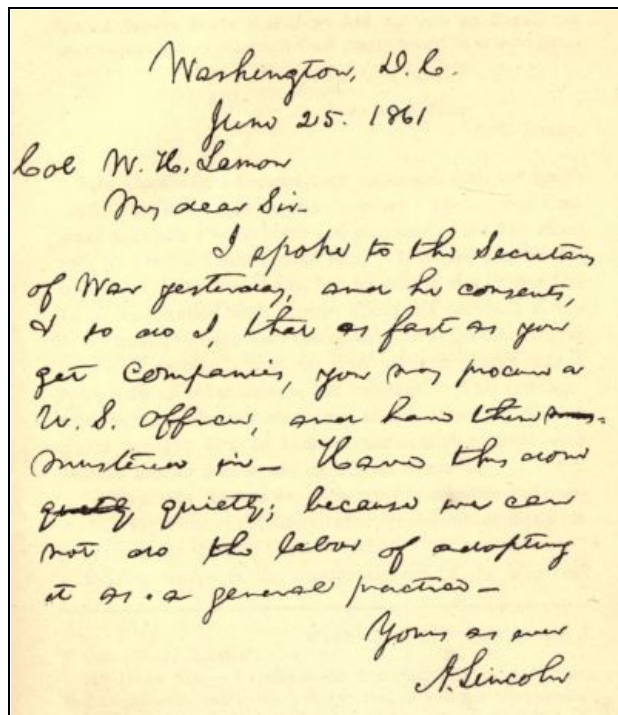 Washington, D.C.
June 25. 1861
Col W. H. Lamon
My dear Sir—
I spoke to the Secretary
of War yesterday, and he consents,
& so do I, that as fast as you
get companies, you may procure a
U.S. officer, and have them
mustered in— Have this done
quietly; because we can
not do the labor of adopting
it as a general practice—
Yours as ever
A. Lincoln